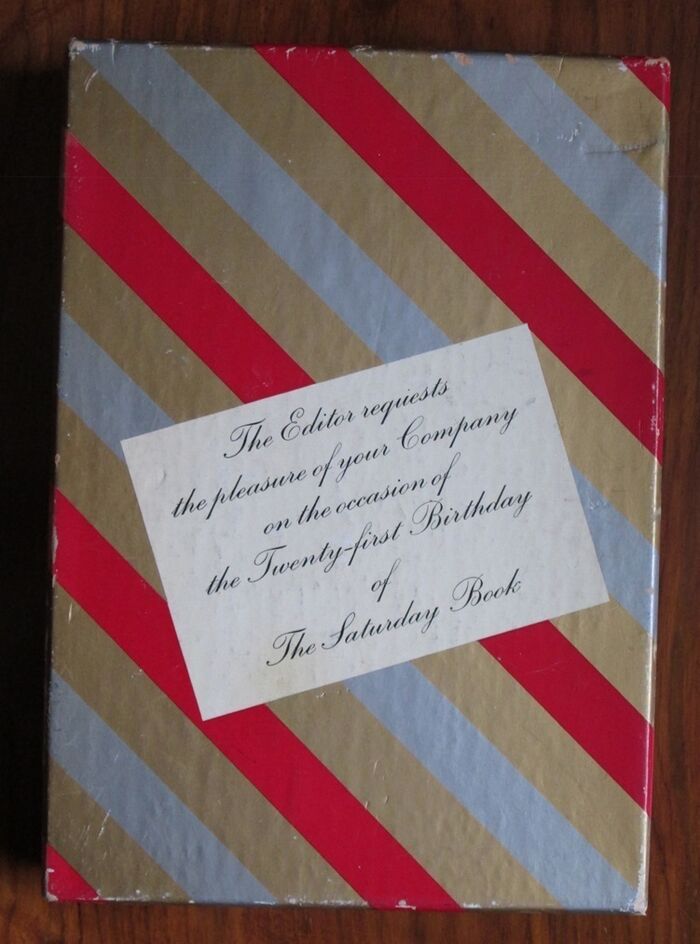 The Editor requests
the pleasure of your Company
on the occasion of
the Twenty-first Birthday
of
The Saturday Book